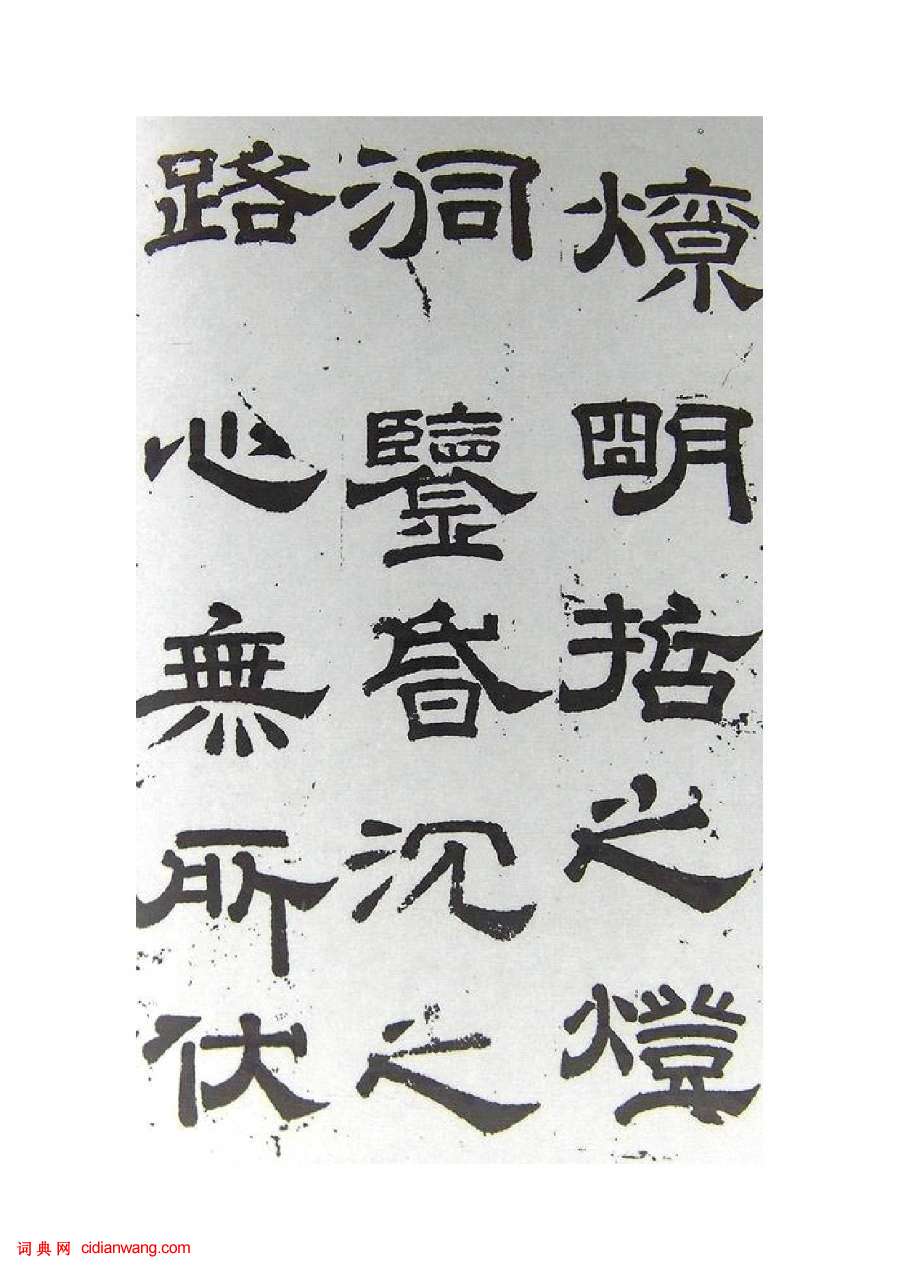 燎明哲之燈
洞鑒昏沉之
路心無所伏
词典网 cidianwang.com